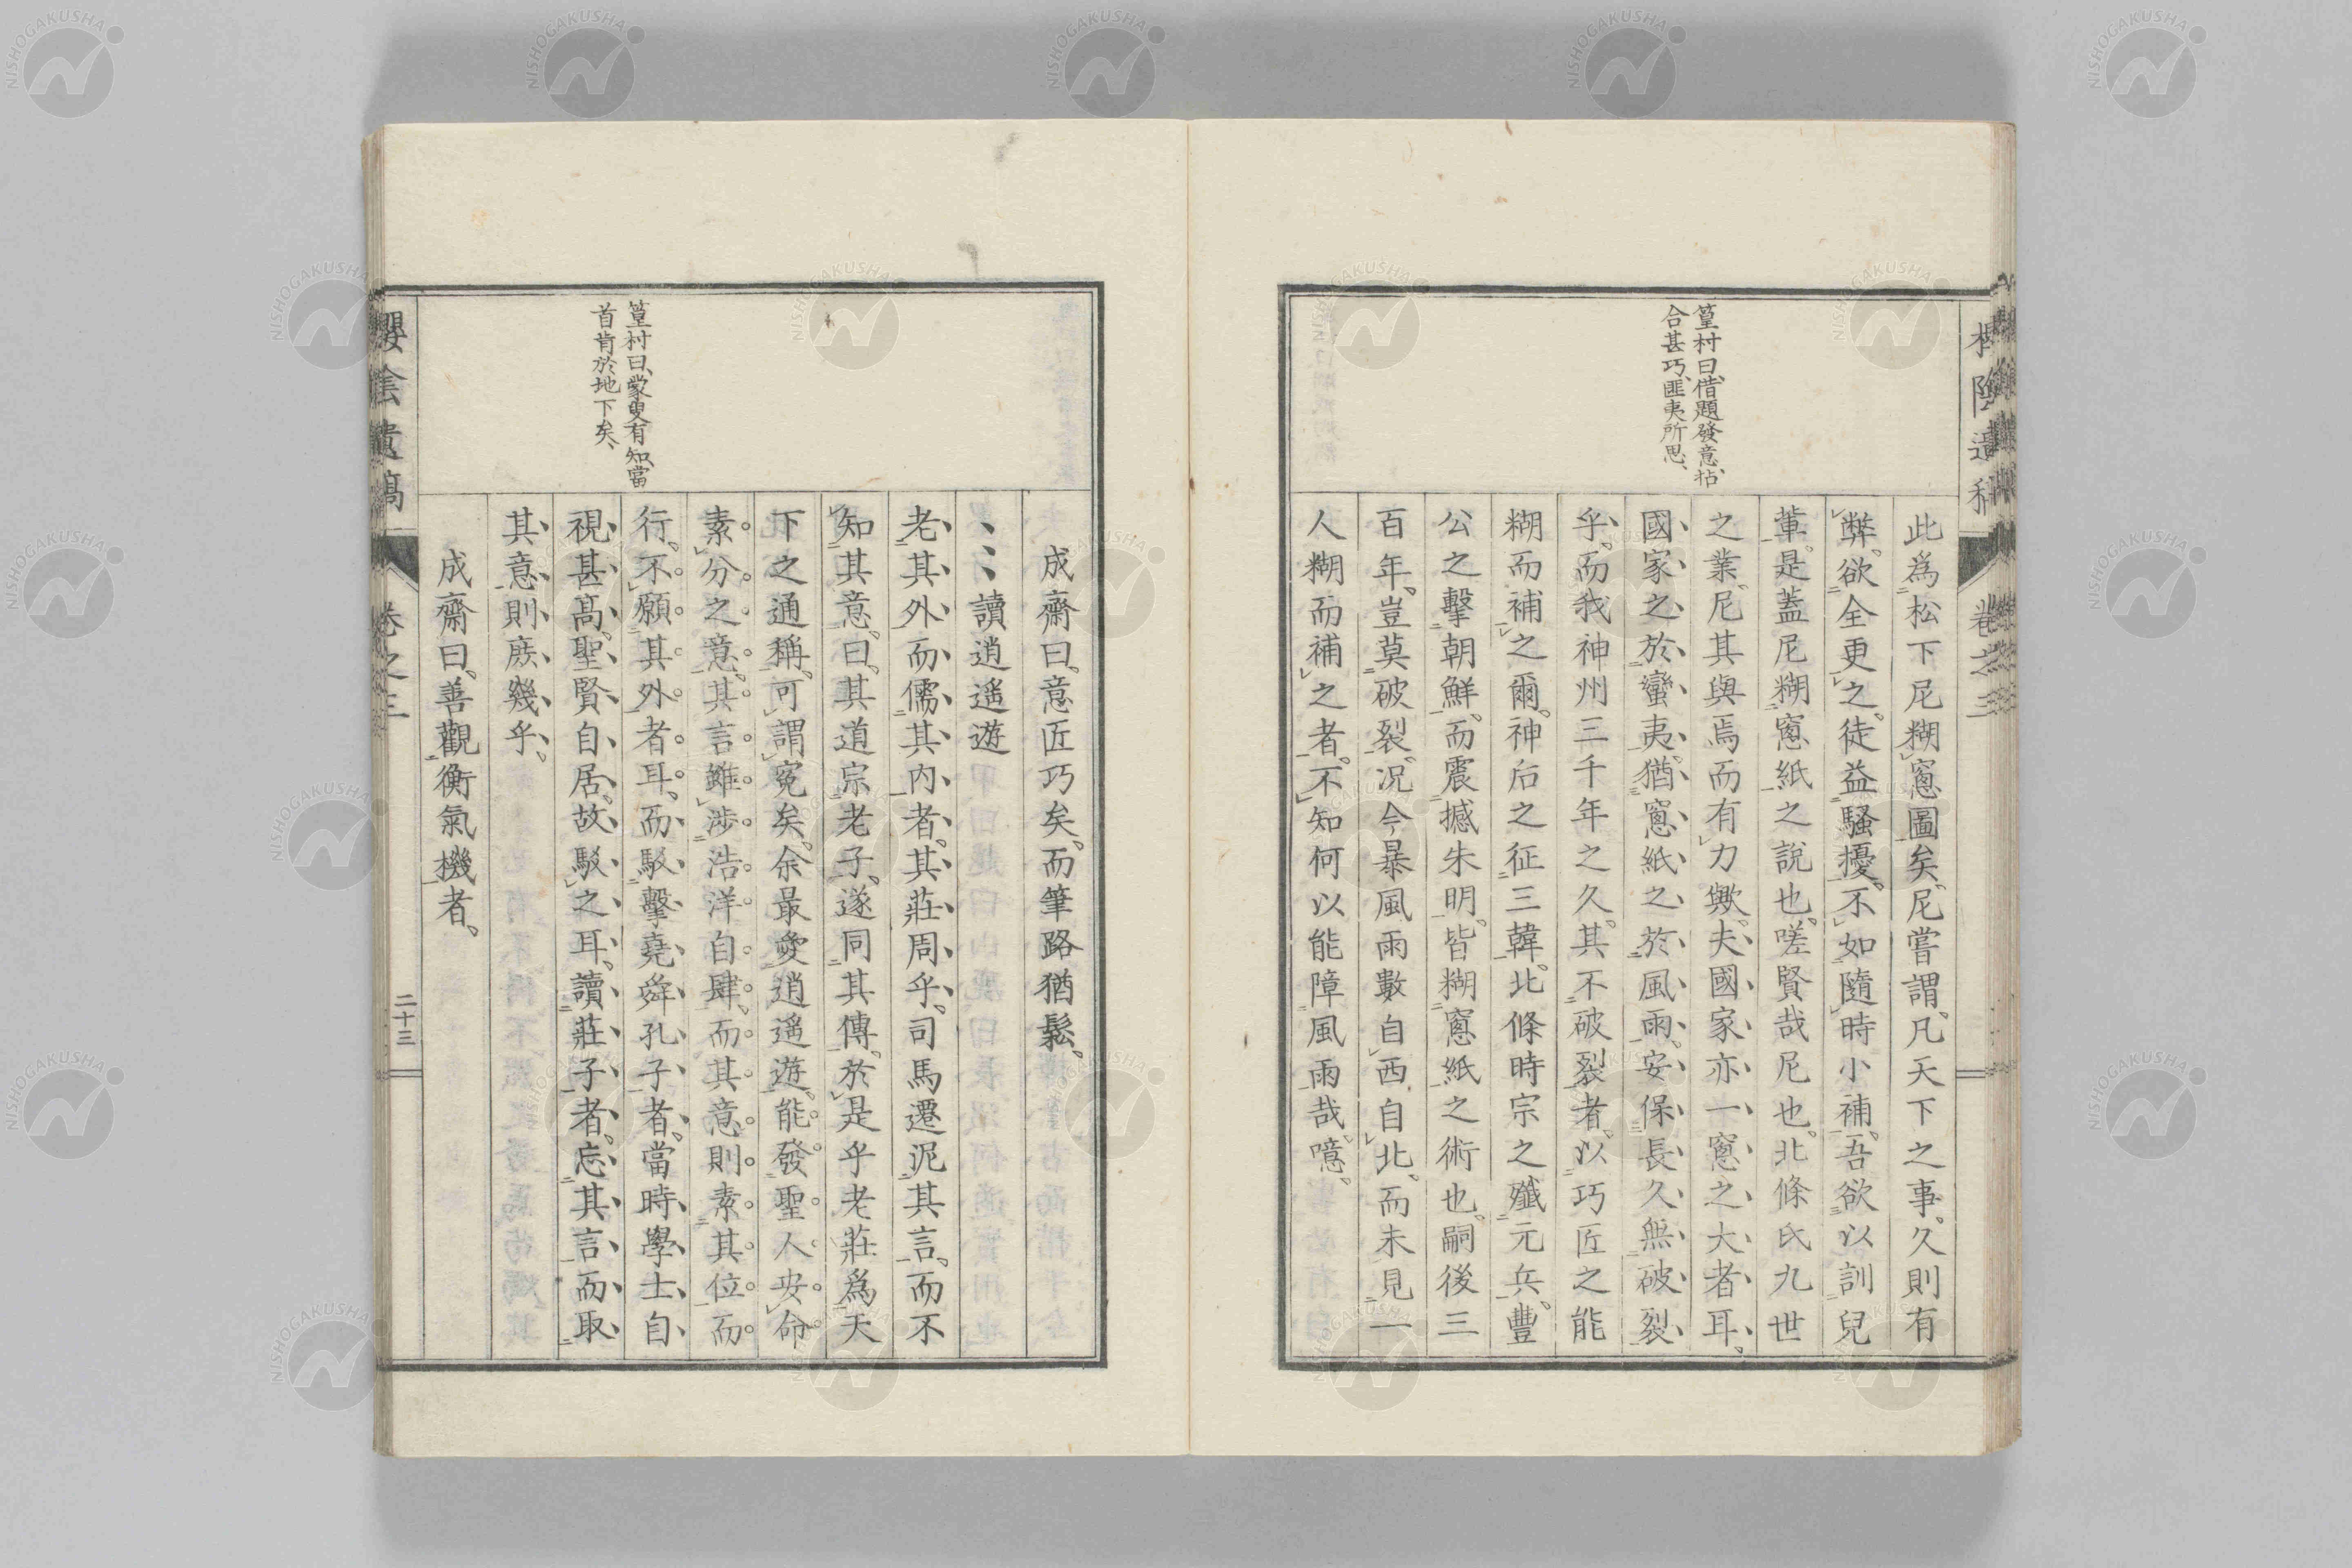 篁村曰、借題發意、拈
合甚巧、匪夷所思、
此爲松下尼糊窻圖矣。尼嘗謂、凡天下之事。久則有
弊。欲全更之。徒益騷擾。不如隨時小補。吾欲以訓兒
輩。是蓋尼糊窻紙之說也。嗟賢哉尼也。北條氏九世
之業。尼其與焉而有力歟。夫國家亦一窻之大者耳。
國家之於蠻夷。猶窻紙之於風雨。安保長久無破裂
乎。而我神州三千年之久。其不破裂者。以巧匠之能
糊而補之爾。神后之征三韓。北條時宗之殲元兵。豐
公之擊朝鮮。而震撼朱明。皆糊窻紙之術也。嗣後三
百年。豈莫破裂。况今暴風雨數自西自北。而未見一
人糊而補之者。不知何以能障風雨哉。噫。
卷之三
成齋曰。意匠巧矣。而筆路猶鬆。
讀逍遙遊
老其外而儒其内者。其莊周乎。司馬遷泥其言。而不
知其意。曰。其道宗老子。遂同其傳。於是乎老莊爲天
下之通稱。可謂寃矣。余最愛逍遙遊。能發聖人安命
素分之意。其言雖涉浩洋自肆。而其意則素其位而
行。不願其外者耳。而駁擊堯舜孔子者。當時學士自
視甚高。聖賢自居。故駁之耳。讀莊子者。忘其言而取
其意則庶幾乎。
成齋曰。善觀衡氣機者。
篁村曰、蒙叟有知、當
首肯於地下矣、
櫻陰遺稿
卷之三
二十三
NISHOGAKUSHA